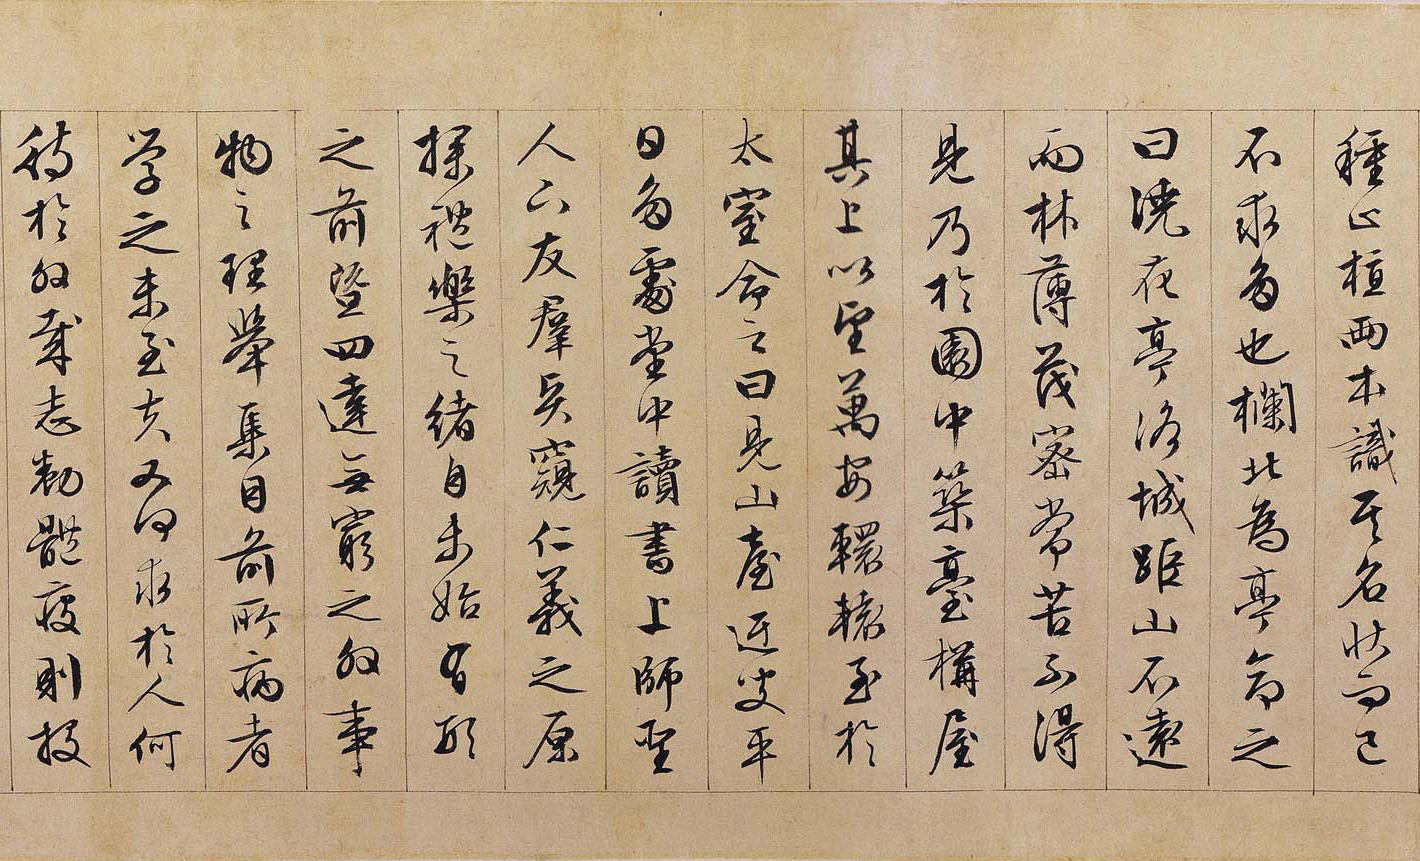 種止植兩本識其名狀而已
不求多也欄北為亭命之
曰澆花亭洛城距山不遠
而林薄茂密常苦不得
見乃於園中築臺構屋
其上以望萬安轘轅至於
太室命之曰見山臺迂叟平
日多處堂中讀書上師聖
人下友群賢窺仁義之原
探禮樂之緒自未始有形
之前暨四達無窮之外事
物之理舉集目前所病者
學之未至夫又何求於人何
待於外哉志勌體疲則投